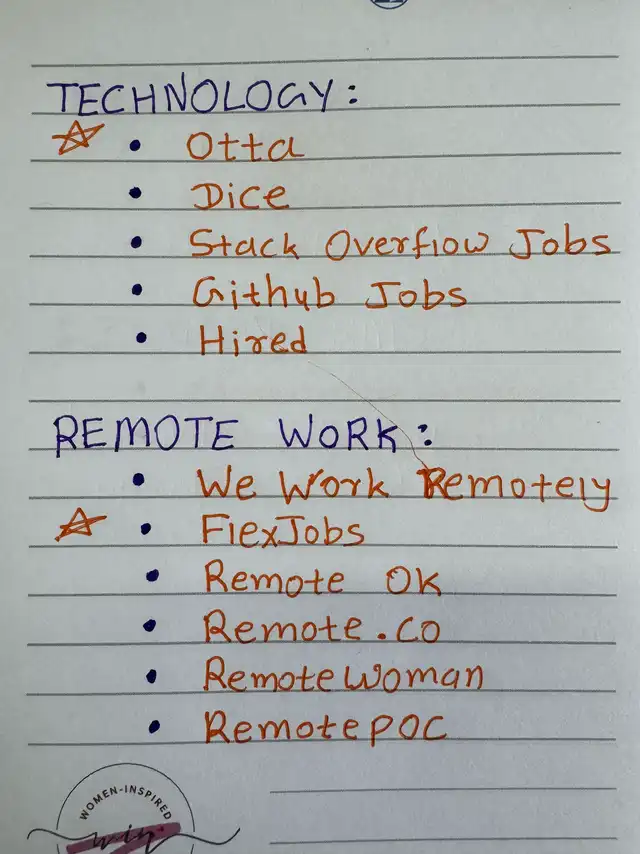 TECHNOLOGY:
☆ • Otta
• Dice
• Stack Overflow Jobs
• Github Jobs
• Hired
REMOTE WORK:
• We Work Remotely
☆ • FlexJobs
• Remote OK
• Remote.co
• RemoteWoman
• RemotePOC
WOMEN-INSPIRED
win